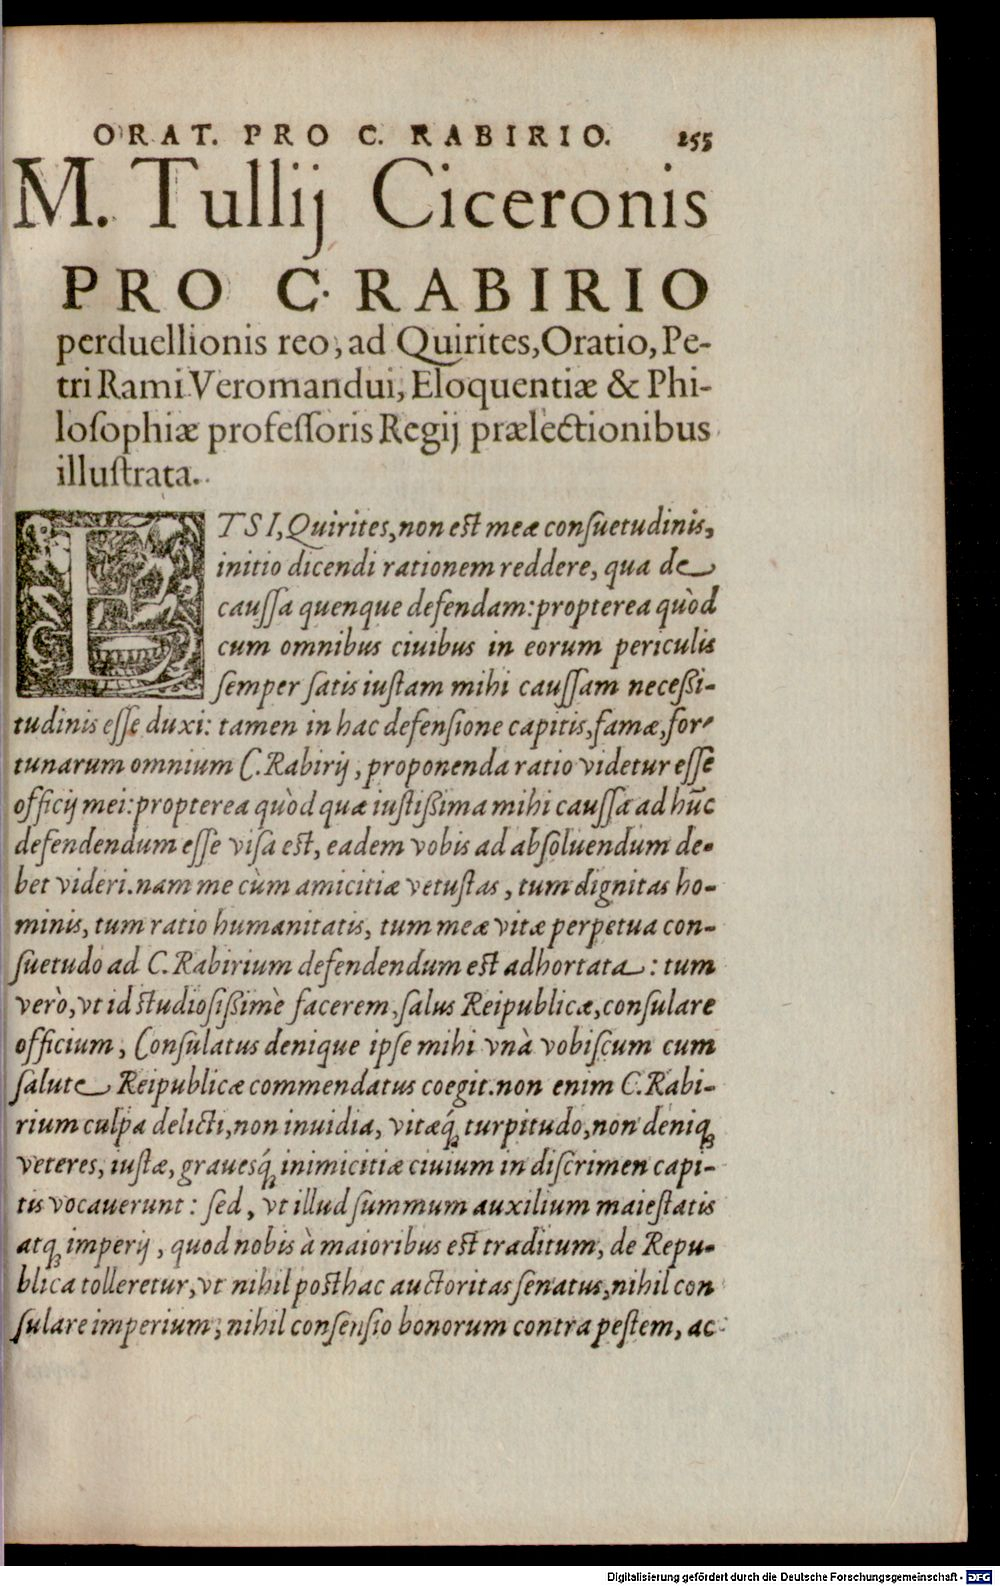 ORAT. PRO C. RABIRIO. 255
M. Tullij Ciceronis
PRO C. RABIRIO
perduellionis reo, ad Quirites, Oratio, Pe-
tri Rami Veromandui, Eloquentiæ & Phi-
losophiæ professoris Regij prælectionibus
illustrata.
ETSI, Quirites, non est meæ consuetudinis,
initio dicendi rationem reddere, qua de
caussa quenque defendam: propterea quòd
cum omnibus ciuibus in eorum periculis
semper satis iustam mihi caussam necessi-
tudinis esse duxi: tamen in hac defensione capitis, famæ, for-
tunarum omnium C. Rabirij, proponenda ratio videtur esse
officij mei: propterea quòd quæ iustissima mihi caussa ad hūc
defendendum esse visa est, eadem vobis ad absoluendum de-
bet videri. nam me cùm amicitiæ vetustas, tum dignitas ho-
minis, tum ratio humanitatis, tum meæ vitæ perpetua con-
suetudo ad C. Rabirium defendendum est adhortata: tum
verò, vt id studiosissimè facerem, salus Reipublicæ, consulare
officium, Consulatus denique ipse mihi vnà vobiscum cum
salute Reipublicæ commendatus coegit. non enim C. Rabi-
rium culpa delicti, non inuidia, vitæq́; turpitudo, non deniq;
veteres, iustæ, grauesq́; inimicitiæ ciuium in discrimen capi-
tis vocauerunt: sed, vt illud summum auxilium maiestatis
atq; imperij, quod nobis à maioribus est traditum, de Repu-
blica tolleretur, vt nihil posthac auctoritas senatus, nihil con
sulare imperium, nihil consensio bonorum contra pestem, ac
Digitalisierung gefördert durch die Deutsche Forschungsgemeinschaft - DFG